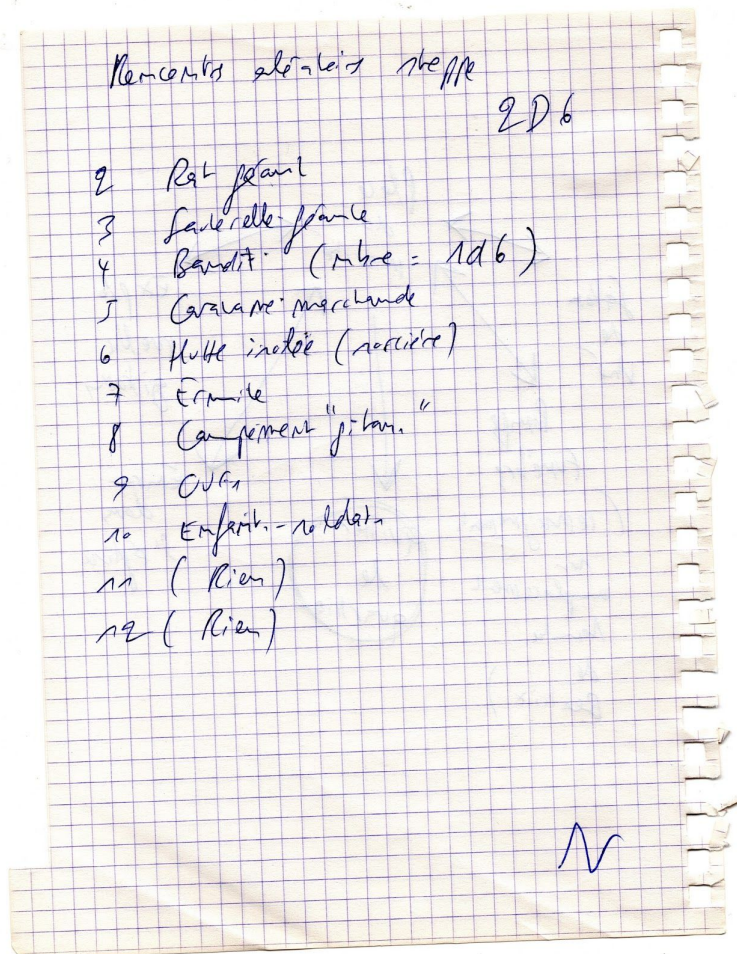 Rencontres aléatoires steppe
2D6
2 Rat géant
3 Sauterelle géante
4 Bandits (nbre = 1d6)
5 Caravane marchande
6 Hutte isolée (sorcière)
7 Ermite
8 Campement "gitan"
9
10 Enfants-soldats
11 (Rien)
12 (Rien)
N